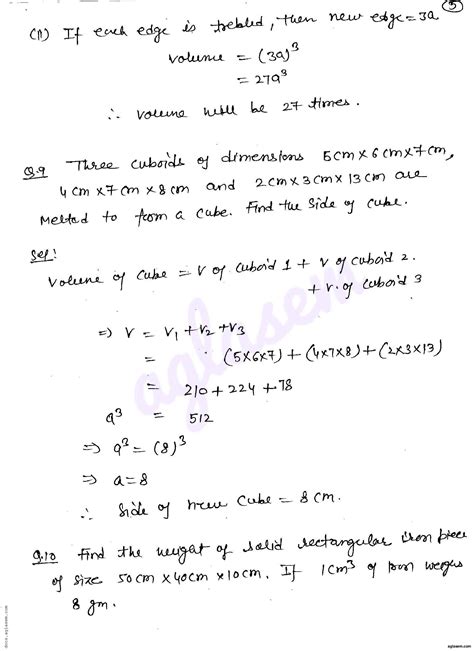 (ii) If each edge is trebled, then new edge = 3a
5
volume = (3a)³
= 27a³
∴ volume will be 27 times.
Q.9 Three cuboids of dimensions 5cm×6cm×7cm,
4cm×7cm×8cm and 2cm×3cm×13cm are
melted to from a cube. Find the side of cube.
Sol:
Volume of cube = V of cuboid 1 + V of cuboid 2.
+ V. of cuboid 3
⇒ V = V₁ + V₂ + V₃
= (5×6×7) + (4×7×8) + (2×3×13)
= 210 + 224 + 78
a³ = 512
⇒ a³ = (8)³
⇒ a = 8
∴ Side of new cube = 8 cm.
Q.10 Find the weight of solid rectangular iron piece
of size 50cm×40cm×10cm. If 1cm³ of iron weighs
8 gm.
aglasem
docs.aglasem.com
aglasem.com